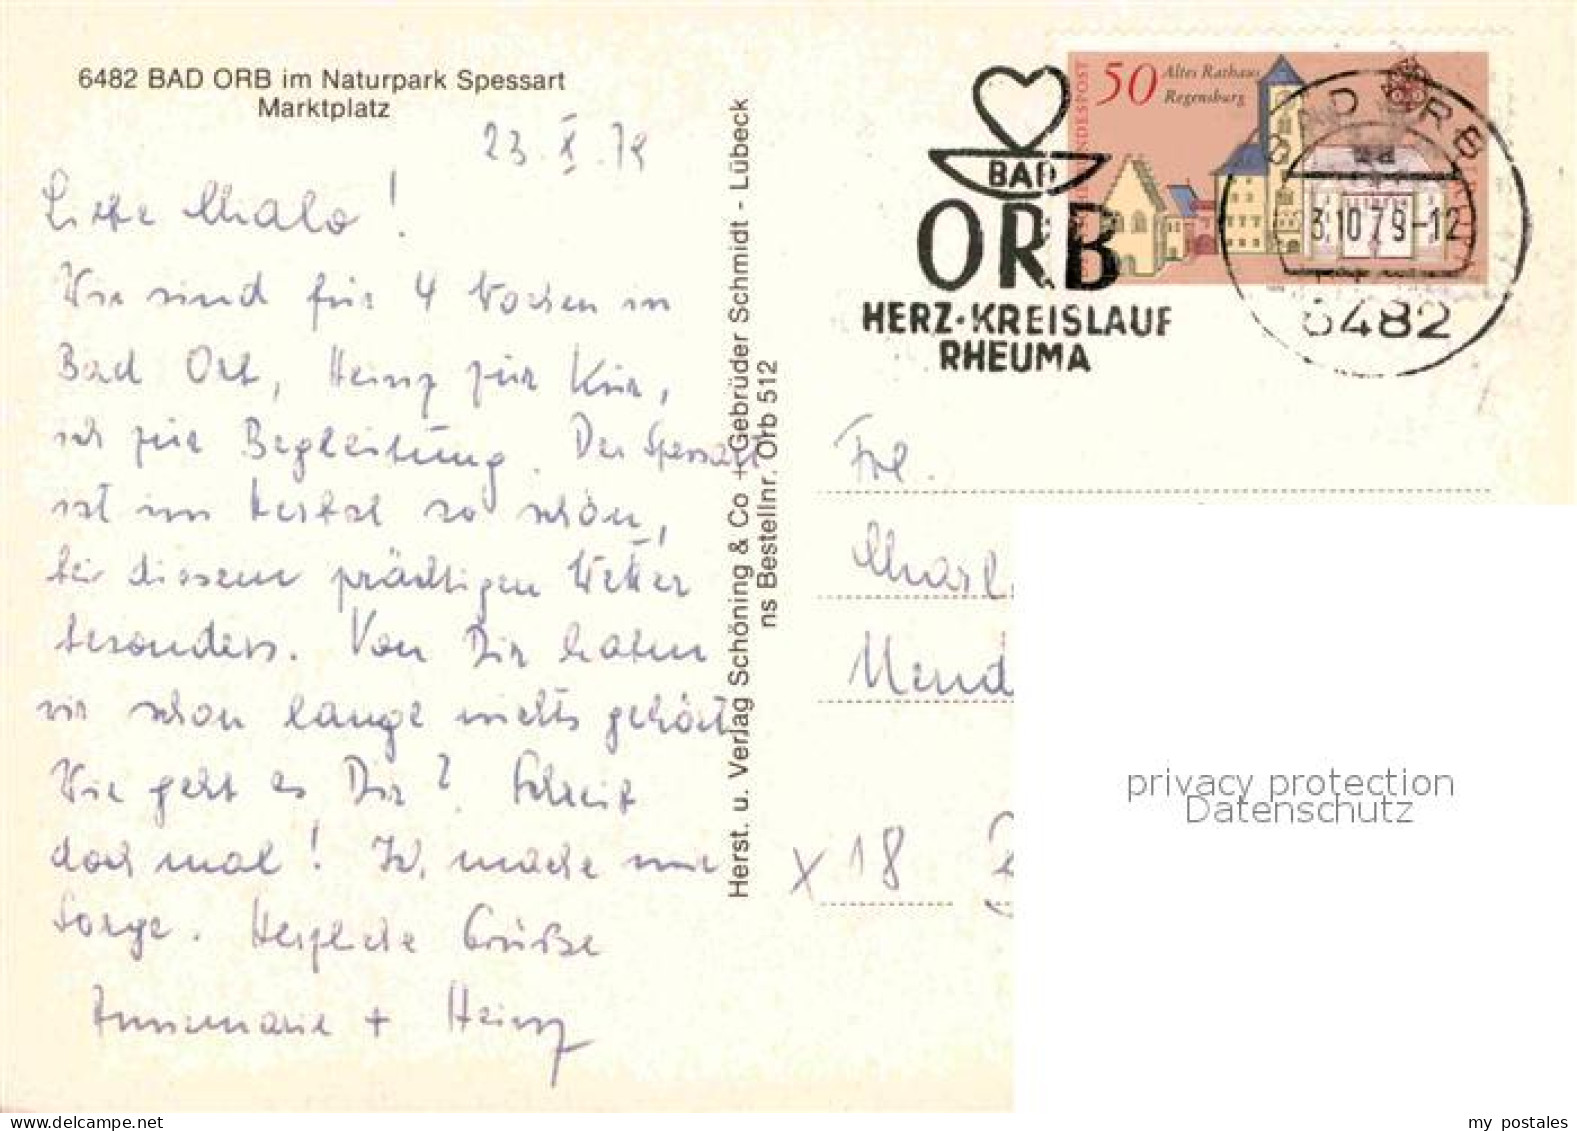 6482 BAD ORB im Naturpark Spessart
Marktplatz
23. X. 79
Liebe Malo!
Wir sind für 4 Wochen in
Bad Orb, Heinz zur Kur,
ich zur Begleitung. Der Spessart
ist im Herbst so schön,
bei diesem prächtigen Wetter
besonders. Von Dir haben
wir schon lange nichts gehört
Wie geht es Dir? Schreib
doch mal! Ich mache mir
Sorge. Herzliche Grüße
Annemarie + Heinz
Herst. u. Verlag Schöning & Co + Gebrüder Schmidt - Lübeck
ns Bestellnr. Orb 512
BAD
ORB
HERZ-KREISLAUF
RHEUMA
50 Altes Rathaus
Regensburg
BAD ORB
3.10.79-12
6482
Frl.
x 18
privacy protection
Datenschutz
my postales